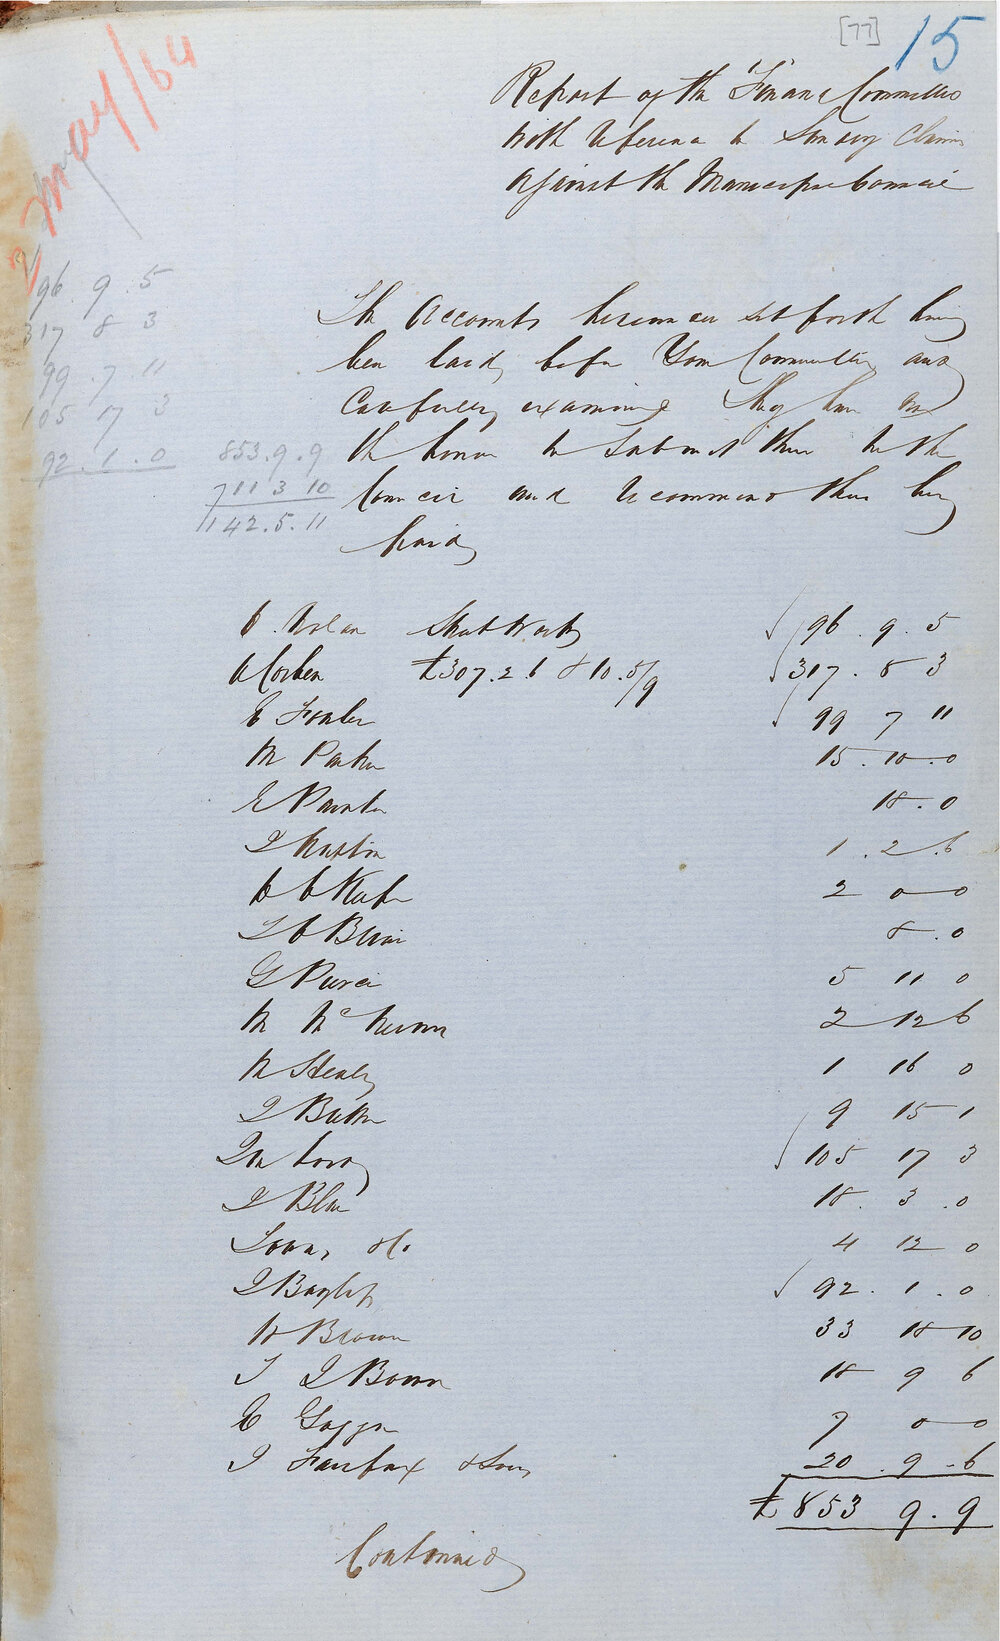 [77] 15
2 May/64
Report of the Finance Committee
with reference to Sundry Claims
against the Municipal Council
96 . 9 . 5
317 8 3
99 . 7 . 11
105 17 3
92 . 1 . 0
853 . 9 . 9
711 3 10
142 . 5 . 11
The Accounts hereinafter set forth having
been laid before Your Committee and
Carefully examined they have now
the honor to submit them to the
Council and recommend their being
paid
C. Nolan Street Works 96 . 9 . 5
A Corben £307 . 2 . 6 & 10 . 5/9 317 . 8 3
E Fowler 99 7 11
M Parker 15 . 10 . 0
E Paynter 18 . 0
1 . 2 . 6
2 0 0
8 . 0
G Pierce 5 11 0
2 12 6
M Healy 1 16 0
J Baker 9 15 1
105 17 3
J Blue 18 . 3 . 0
4 12 0
J Bayliss 92 . 1 . 0
H Brown 33 18 10
T J Bown 18 9 6
7 0 0
J Fairfax & Sons 20 . 9 . 6
£853 9 . 9
Continued